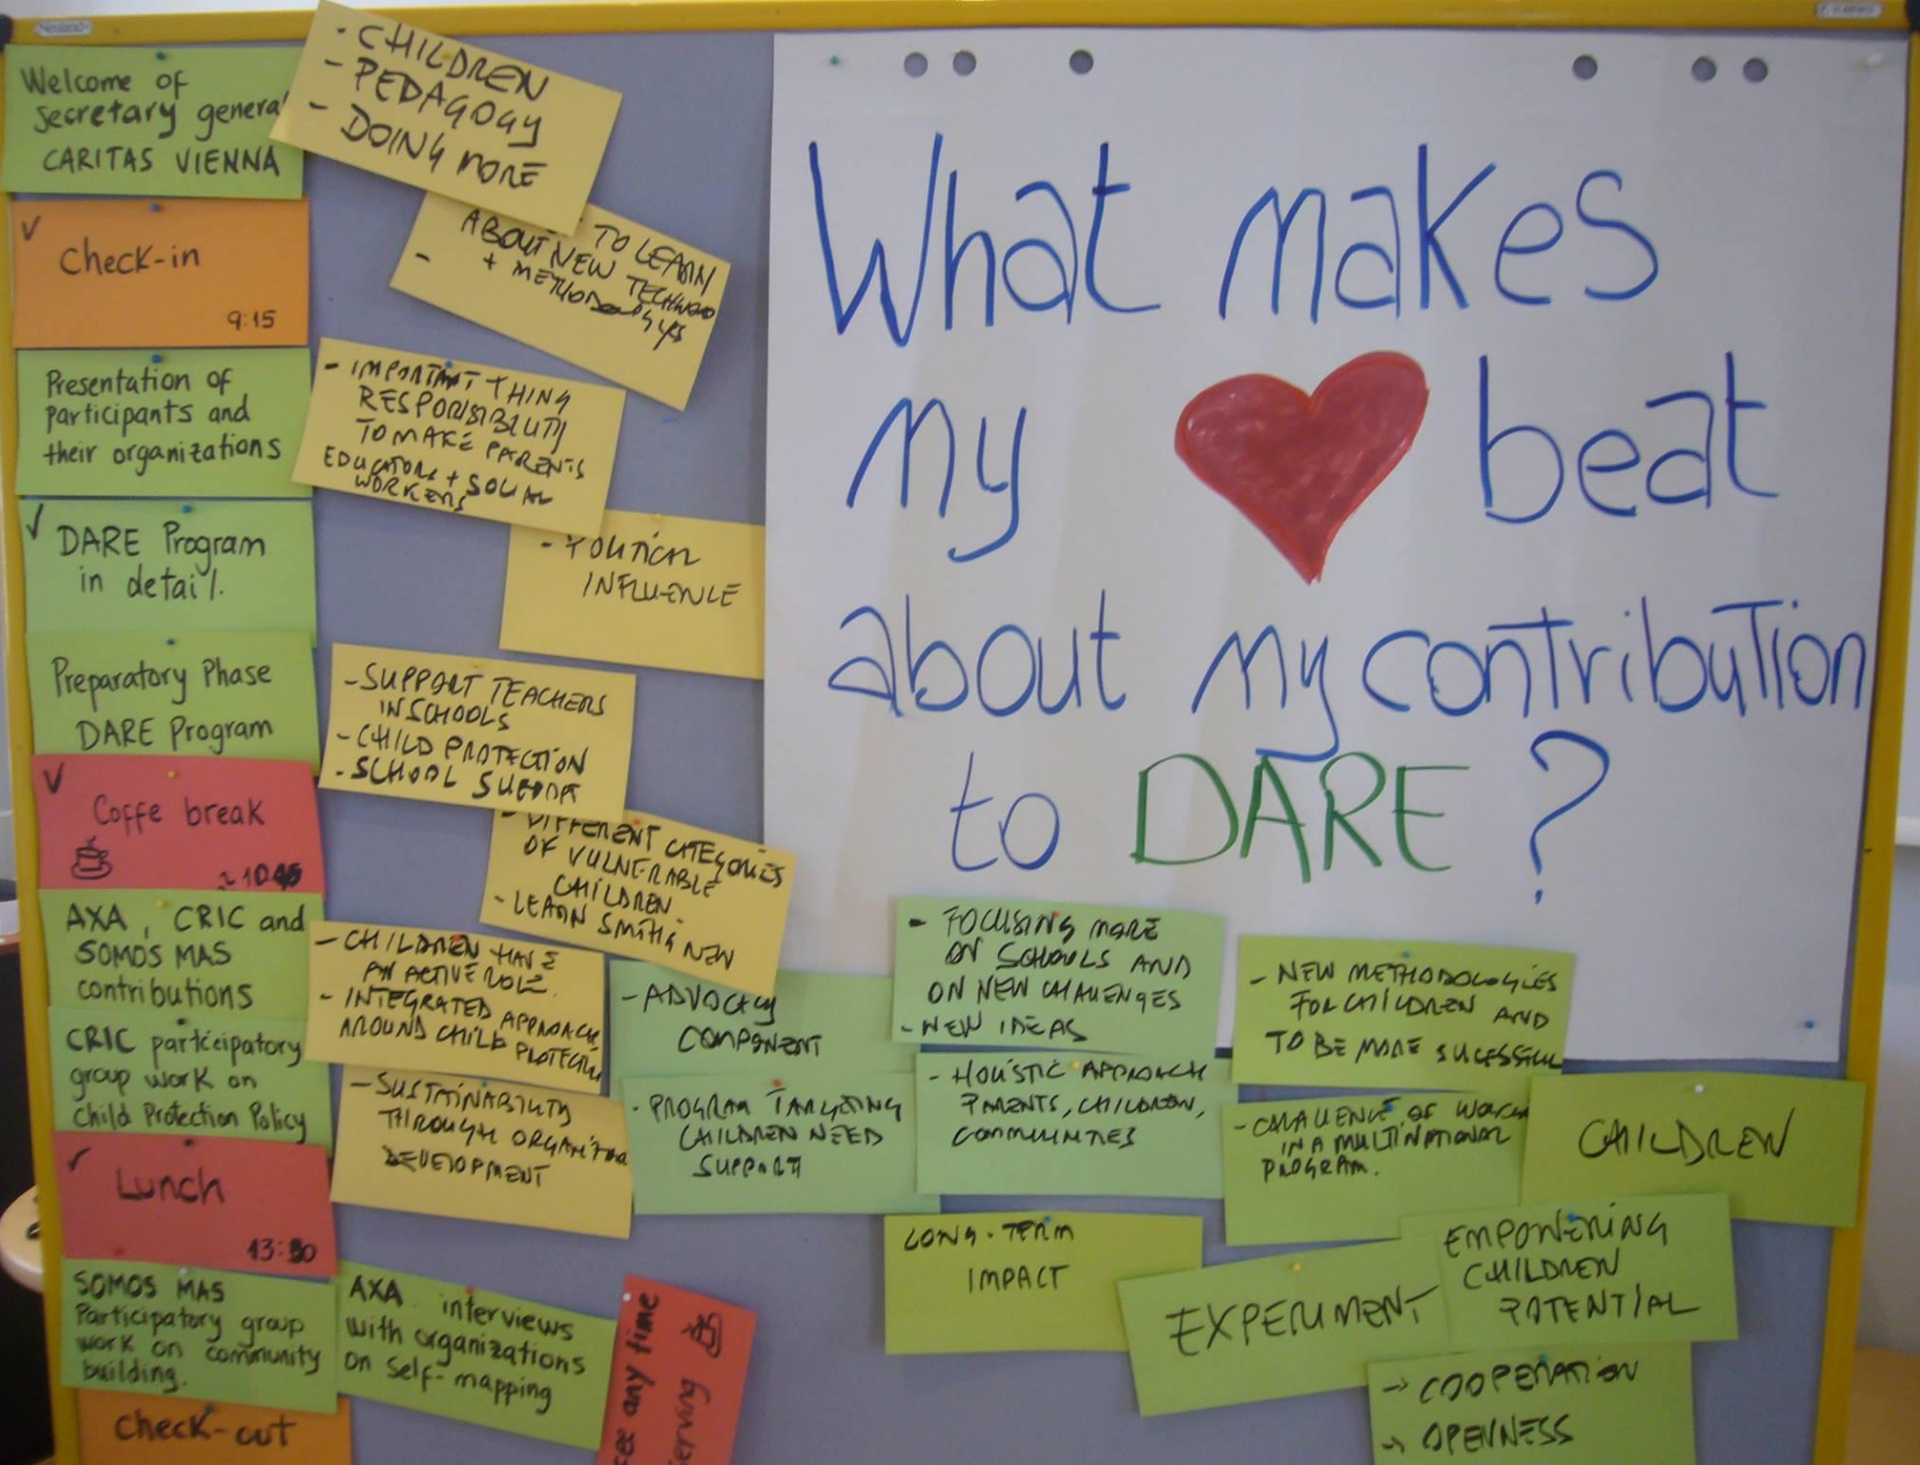 Welcome of
secretary genera
CARITAS VIENNA
Check-in
9:15
Presentation of
participants and
their organizations
DARE Program
in detail.
Preparatory Phase
DARE Program
Coffe break
AXA, CRIC and
SOMOS MAS
contributions
CRIC participatory
group work on
Child Protection Policy
Lunch
SOMOS MAS
Participatory group
work on community
building.
Check-out
- CHILDREN
- PEDAGOGY
- DOING MORE
TO LEARN
ABOUT NEW
+
-
- IMPORTANT THING
RESPONSIBILITY
TO MAKE PARENTS
EDUCATORS + SOCIAL
WORKERS
- POLITICAL
INFLUENCE
- SUPPORT TEACHERS
IN SCHOOLS
- CHILD PROTECTION
- SCHOOL SUPPORT
- DIFFERENT CATEGORIES
OF VULNERABLE
CHILDREN.
- LEARN SMTHG NEW
- CHILDREN HAVE
AN ACTIVE ROLE.
- INTEGRATED APPROACH
AROUND CHILD PROTECTION
- SUSTAINABILITY
THROUGH
DEVELOPMENT
AXA interviews
with organizations
on self-mapping
any time
What makes
my beat
about my contribution
to DARE?
- ADVOCACY
COMPONENT
- PROGRAM TARGETING
CHILDREN NEED
SUPPORT
- FOCUSING MORE
ON SCHOOLS AND
ON NEW CHALLENGES
- NEW IDEAS
- HOLISTIC APPROACH
PARENTS, CHILDREN,
COMMUNITIES
- NEW METHODOLOGIES
FOR CHILDREN AND
TO BE MORE SUCESSFUL
- CHALLENGE OF WORK
IN A MULTINATIONAL
PROGRAM.
CHILDREN
LONG-TERM
IMPACT
EXPERIMENT
EMPOWERING
CHILDREN
POTENTIAL
→ COOPERATION
→ OPENNESS